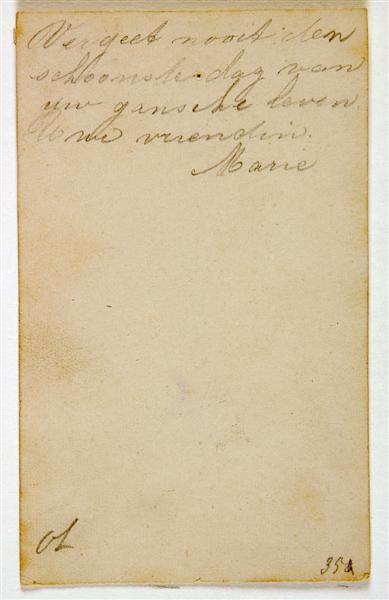 Vergeet nooit den
schoonste dag van
uw gansche leven.
Uwe vriendin.
Marie